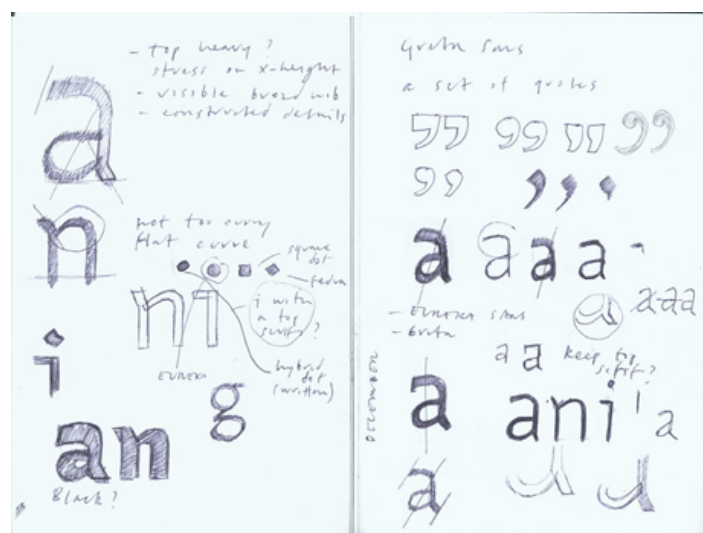 - top heavy?
stress on x-height
- visible broad nib
- constructed details
a
n
not too curvy
flat curve
square
dot
fedra
ni
i with
a top
serif?
EUREKA
hybrid
dot
(written)
i
g
an
Black?
Greta Sans
a set of quotes
a a a a
- EUREKA SANS
- Greta
a a a
a a
keep top
serif?
DECEMBER
a
ani
a
a